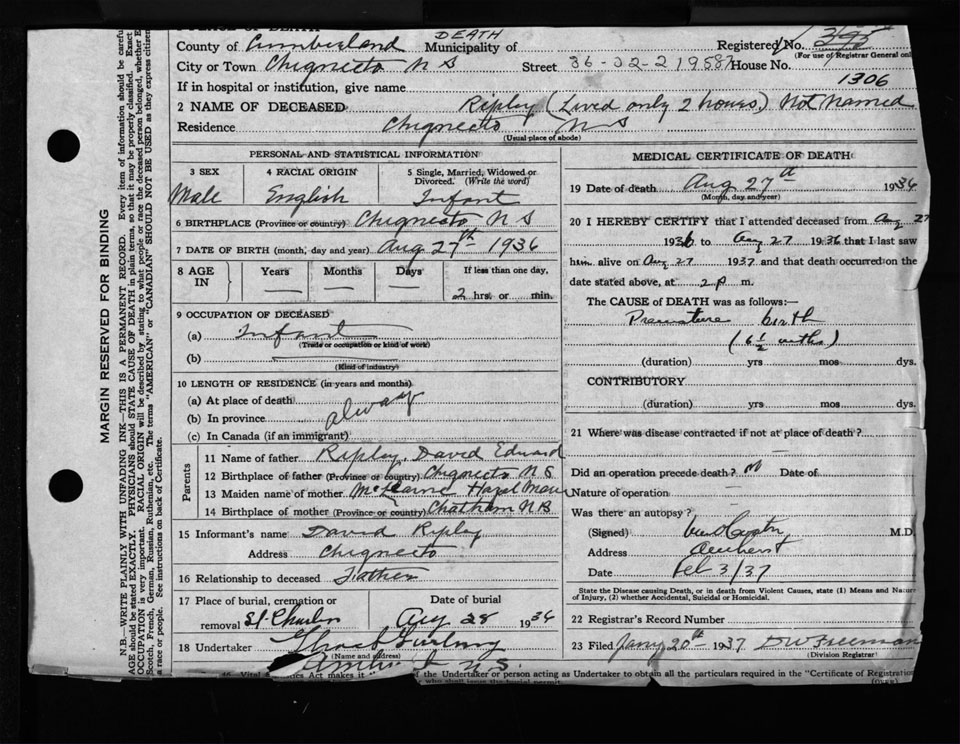 County of Cumberland DEATH Municipality of Registered No. 395
(For use of Registrar General only)
City or Town Chignecto N S Street 36-32-219587 House No.
If in hospital or institution, give name 1306
2 NAME OF DECEASED Ripley (Lived only 2 hours) Not Named
Residence Chignecto N S
(Usual place of abode)
MARGIN RESERVED FOR BINDING
N.B.—WRITE PLAINLY WITH UNFADING INK—THIS IS A PERMANENT RECORD. Every item of information should be carefu
AGE should be stated EXACTLY. PHYSICIANS should STATE CAUSE OF DEATH in plain terms, so that it may be properly classified. Exact
OCCUPATION is very important. RACIAL ORIGIN will be described by stating to what people or race the deceased person belonged, whether E
Scotch, French, German, Russian, Ruthenian, etc. The terms "AMERICAN" or "CANADIAN" SHOULD NOT BE USED as they express citizen
a race or people. See instructions on back of Certificate.
PERSONAL AND STATISTICAL INFORMATION
3 SEX 4 RACIAL ORIGIN 5 Single, Married, Widowed or Divorced. (Write the word)
Male English Infant
6 BIRTHPLACE (Province or country) Chignecto N S
7 DATE OF BIRTH (month, day and year) Aug 27th 1936
8 AGE IN Years Months Days If less than one day,
2 hrs. or min.
9 OCCUPATION OF DECEASED
(a) Infant
(Trade or occupation or kind of work)
(b)
(Kind of industry)
10 LENGTH OF RESIDENCE (in years and months)
(a) At place of death
(b) In province always
(c) In Canada (if an immigrant)
Parents
11 Name of father Ripley David Edward
12 Birthplace of father (Province or country) Chignecto N S
13 Maiden name of mother Hazel
14 Birthplace of mother (Province or country) Chatham N B
15 Informant's name David Ripley
Address Chignecto
16 Relationship to deceased Father
17 Place of burial, cremation or Date of burial
removal St. Charles Aug 28 1936
18 Undertaker
(Name and address)
N.S.
MEDICAL CERTIFICATE OF DEATH
19 Date of death Aug 27th 1936
(Month, day and year)
20 I HEREBY CERTIFY that I attended deceased from Aug 27
1936 to Aug 27 1936 that I last saw
him alive on Aug 27 1937 and that death occurred on the
date stated above, at 2 p m.
The CAUSE of DEATH was as follows:—
Premature birth
(6 1/2 mths)
(duration) yrs mos dys.
CONTRIBUTORY
(duration) yrs mos dys.
21 Where was disease contracted if not at place of death?
Did an operation precede death? no Date of
Nature of operation
Was there an autopsy?
(Signed) M.D.
Address Amherst
Date Feb 3/37
State the Disease causing Death, or in death from Violent Causes, state (1) Means and Nature
of Injury, (2) whether Accidental, Suicidal or Homicidal.
22 Registrar's Record Number
23 Filed Jany 20th 1937 D W Freeman
(Division Registrar)
Act makes it of the Undertaker or person acting as Undertaker to obtain all the particulars required in the "Certificate of Registration
who shall issue the burial permit.
(OVER)